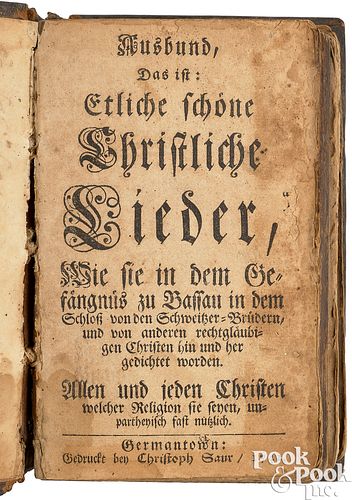 Ausbund,
Das ist:
Etliche schöne
Christliche
Lieder,
Wie sie in dem Ge-
fängnüs zu Bassau in dem
Schloß von den Schweitzer-Brüdern,
und von anderen rechtgläubi-
gen Christen hin und her
gedichtet worden.
Allen und jeden Christen
welcher Religion sie seyen, un-
partheyisch fast nutzlich.
Germantown:
Gedruckt bey Christoph Saur,
POOK
& POOK
Inc.